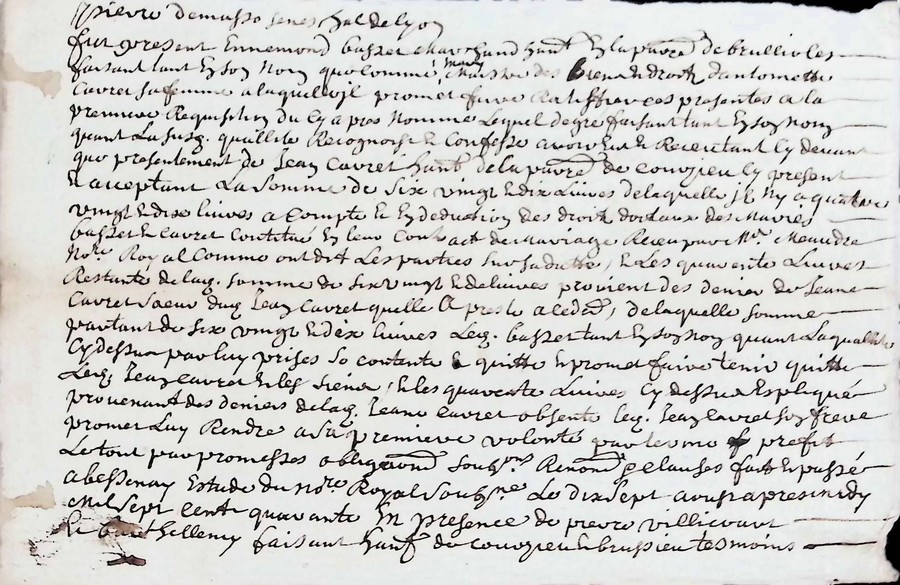 pierre demasso senechal de lyon
fut present Ennemond basset marchand hant En la parre de brullioles
faisant tant En son Nom que Comme mary Maistre des biens & droits dantoinette
Cavret sa femme a laquelle jl promet faire Ratiffier ces presentes a la
premiere Requisition du Cy apres Nomme Lequel de gre faisant tant En son Nom
quant La susd. quallité Recognoist & Confesse avoir Eu & Receu tant Cy devant
que presentement de Jean Cavret hant de la parre de Couzieu Cy present
& acceptant La Somme de Six vingt & dix Livres de laquelle jl Ny a quatre
vingt & dix livres a Compte & En deduction des droits dotaux des Maries
basset & Cavret Constitué En leur Contract de Mariage Receu par Me. Meaudre
Nore Royal Comme ont dit Les parties & Les quarente Livres
Restante de lad. Somme de Six vingt & dix livres provient des denier de Jeane
Cavret Soeur dud Jean Cavret quelle A preste a de laquelle Somme
partant de Six vingt & dix livres Led. basset tant En son Nom quant La quallité
Cy dessus par luy prises Se contente & quitte & promet faire tenir quitte
Led. Jean Cavret & les Siens, & les quarente Livres Cy dessus Expliqué
provenant des deniers de lad. Jeane Cavret absente Led. Jean Cavret Son frere
promet Luy Rendre a Sa premiere volonté par les mo prefit
Le tout par promesses obligaons Soubmons Renonons & clauses fait & passé
a bessenay Estude du Nore Royal Soubsne Le dix Sept aoust apres midy
Mil Sept Cent quarante En presence de pierre villicourt
& barthellemy faisant hants de Couzieu & brussieu tesmoins